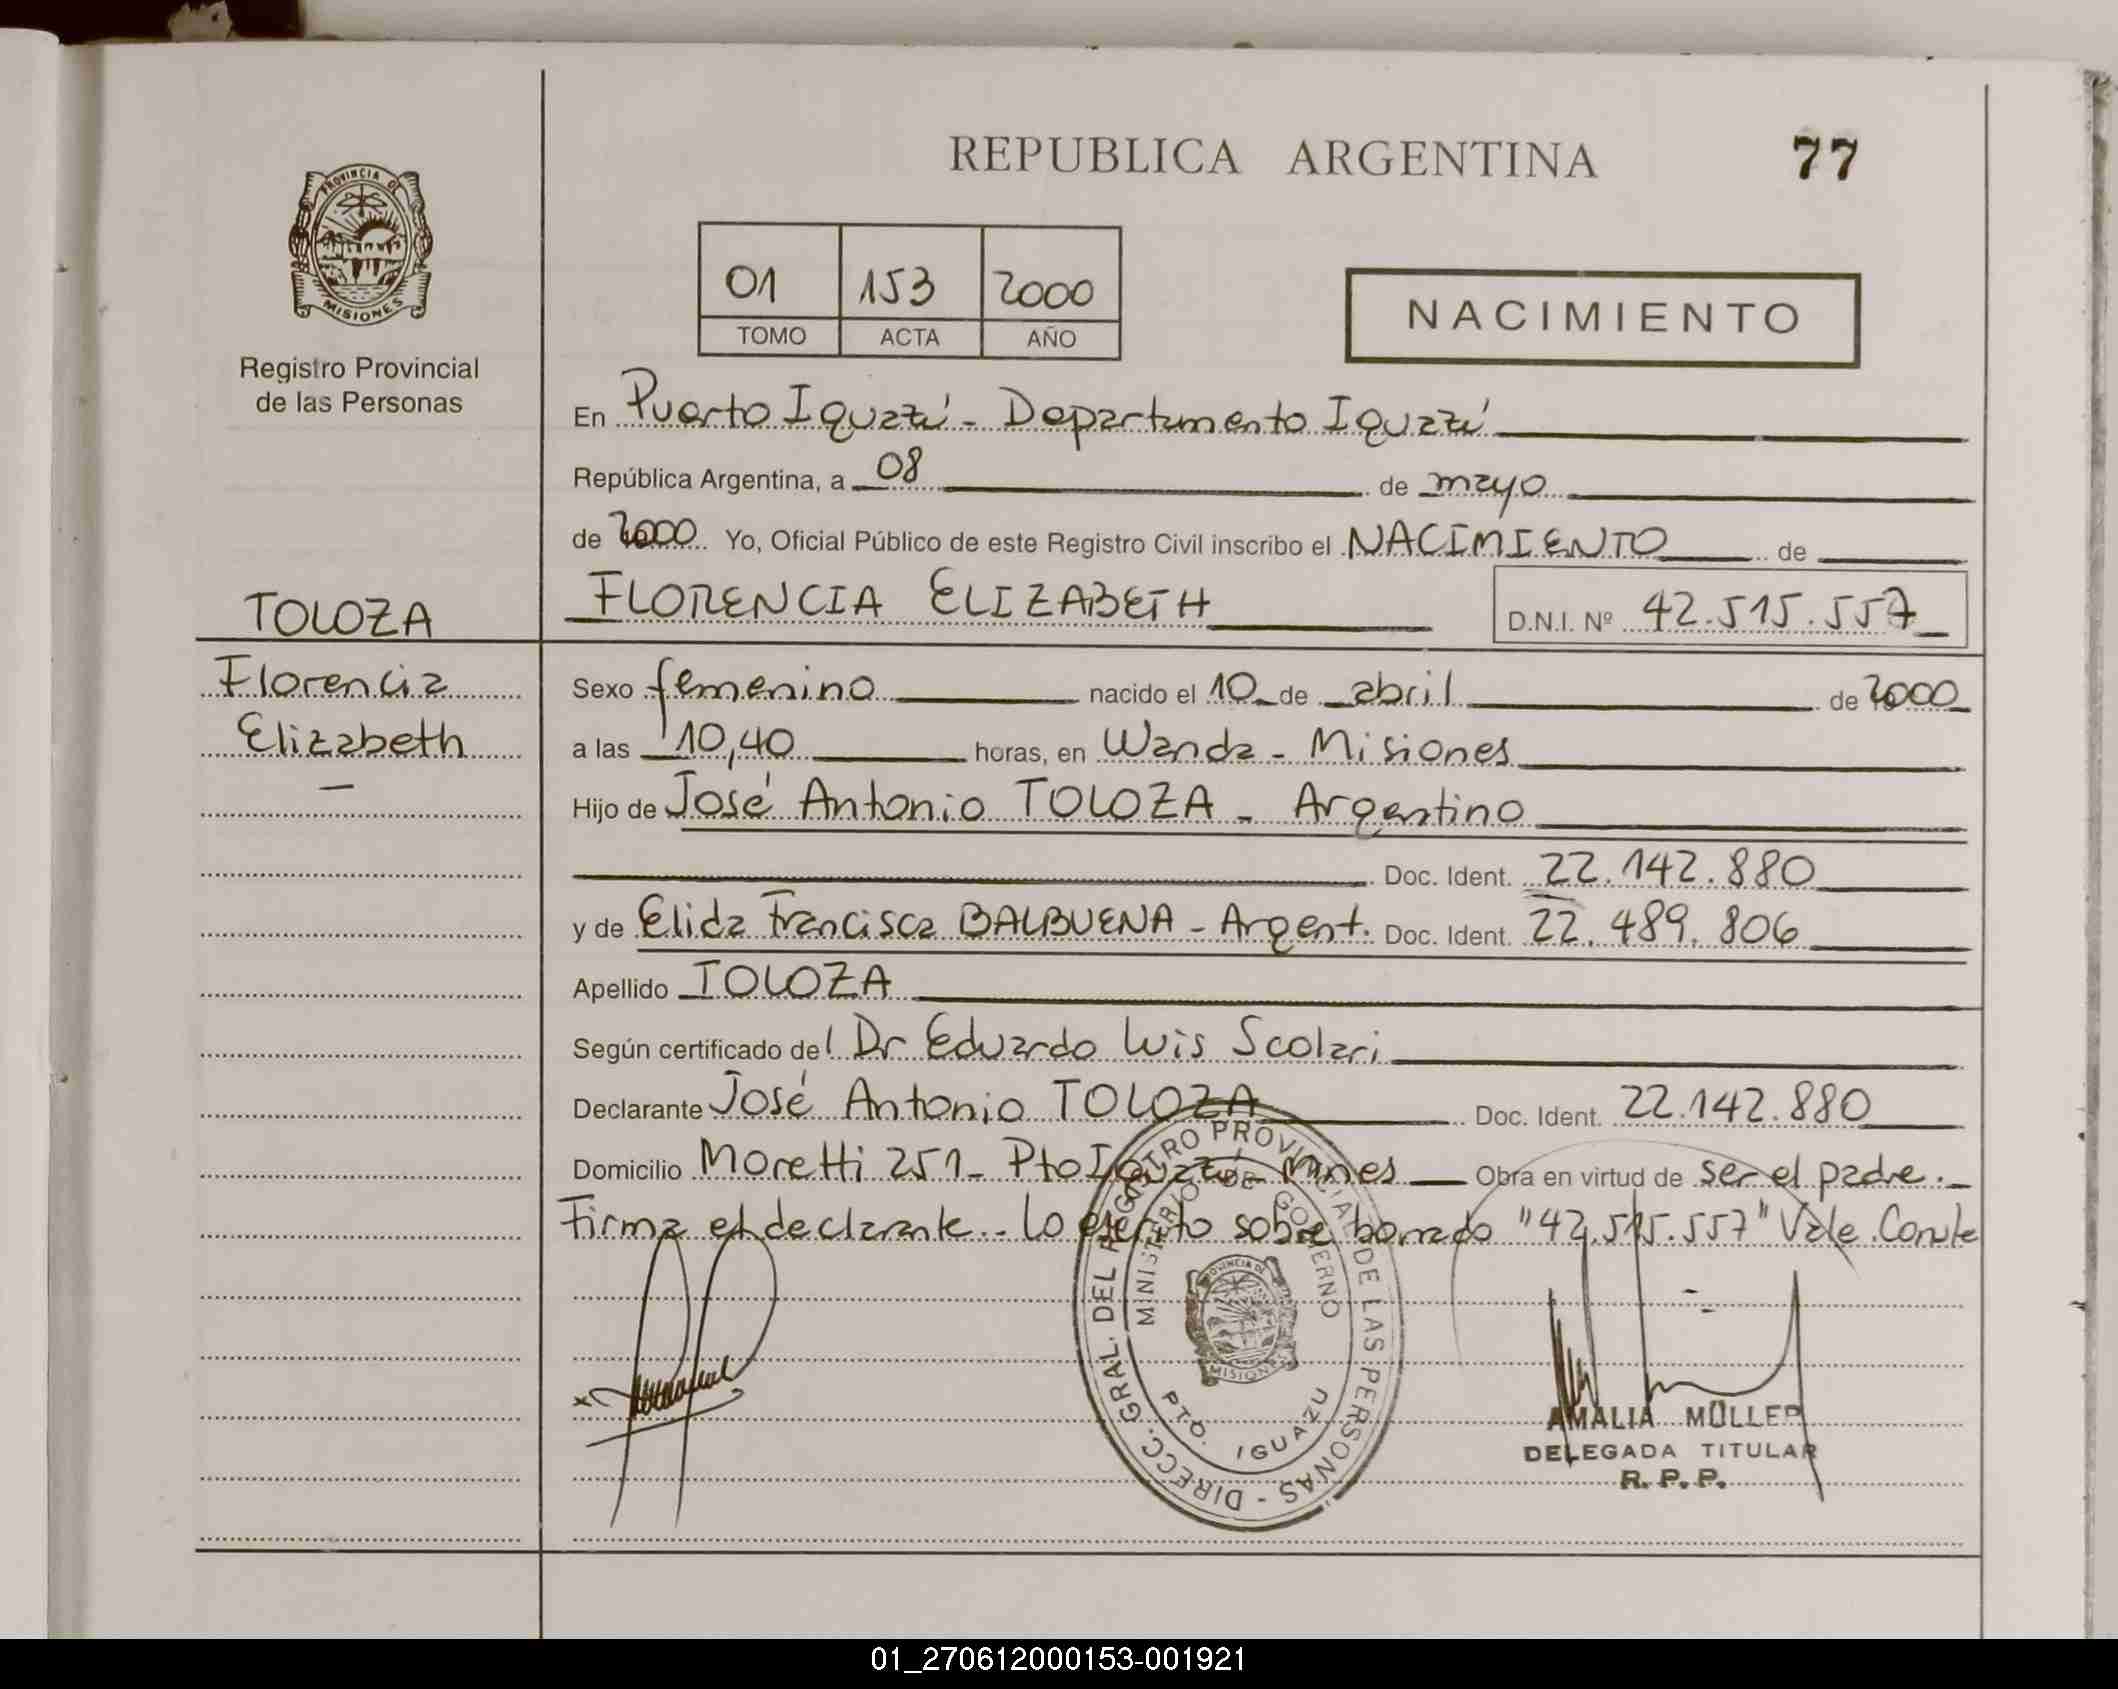 REPUBLICA ARGENTINA
77
PROVINCIA DE
MISIONES
Registro Provincial
de las Personas
01 153 2000
TOMO ACTA AÑO
NACIMIENTO
En Puerto Iguazú - Departamento Iguazú
República Argentina, a 08 de mayo
de 2000 Yo, Oficial Público de este Registro Civil inscribo el NACIMIENTO de
FLORENCIA ELIZABETH
D.N.I. Nº 42.515.557
TOLOZA
Florencia
Elizabeth
Sexo femenino nacido el 10 de abril de 2000
a las 10,40 horas, en Wanda - Misiones
Hijo de José Antonio TOLOZA - Argentino
Doc. Ident. 22.142.880
y de Elida Francisca BALBUENA - Argent. Doc. Ident. 22.489.806
Apellido TOLOZA
Según certificado del Dr Eduardo Luis Scolari
Declarante José Antonio TOLOZA Doc. Ident. 22.142.880
Domicilio Moretti 251 - Pto Iguazú - Mnes Obra en virtud de ser el padre.
Firma el declarante.. Lo escrito sobre borrado "42.515.557" Vale. Conste
DIRECC. GRAL. DEL REGISTRO PROVINCIAL DE LAS PERSONAS -
MINISTERIO DE GOBIERNO
PROVINCIA DE
MISIONES
PTO. IGUAZU
AMALIA MÜLLER
DELEGADA TITULAR
R. P. P.
01_270612000153-001921